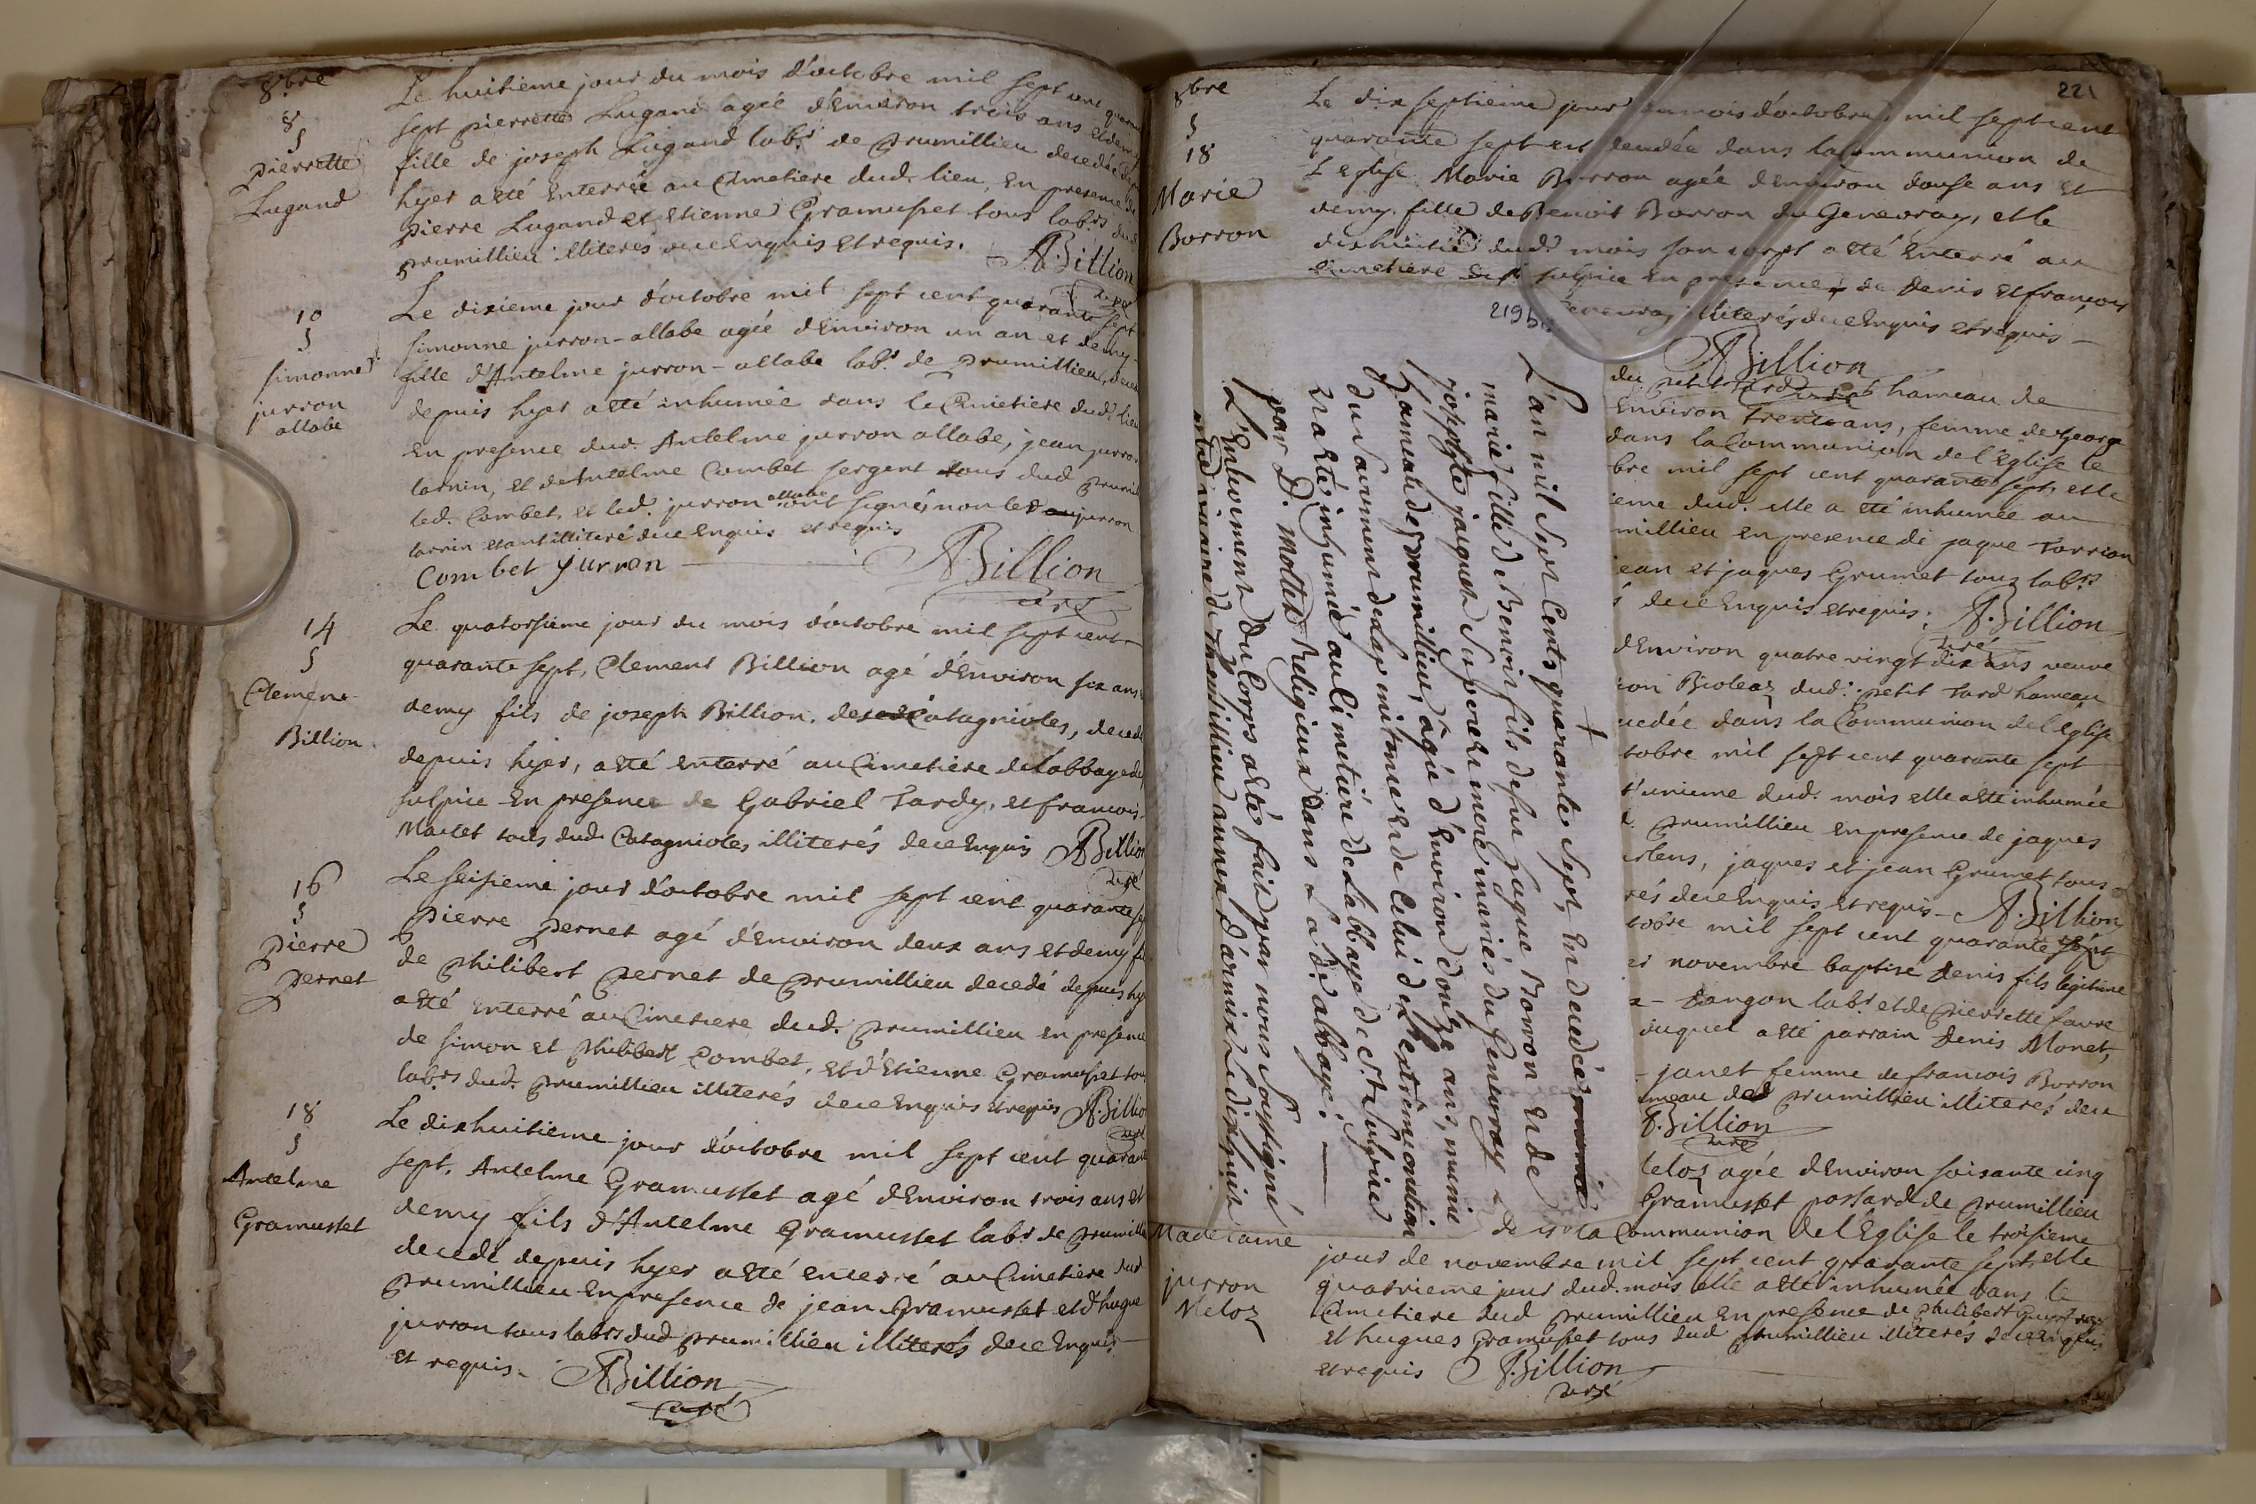 8.bre
8
§
pierrette
Lugand
Le huitieme jour du mois d'octobre mil sept cent
sept pierrette Lugand agée d'Environ trois ans et demy
fille de joseph Lugand lab.r de prumillieu decedée
hyer a eté Enterrée au Cimetiere dud. lieu, En presence de
pierre Lugand et Etienne Gramusset tous lab.rs dud.
prumillieu illiterés de ce Enquis et requis. A. Billion
curé
10
§
simonne
jurron
allabe
Le dixieme jour d'octobre mil sept cent quarante sept
simonne jurron-allabe agée d'Environ un an et demy
fille d'Antelme jurron-allabe lab.r de prumillieu,
depuis hyer a eté inhumée dans le Cimetiere dud. lieu
En presence dud. Antelme jurron allabe, jean jurron
et de Antelme Combet sergent tous dud.
led. Combet, et led. jurron allabe ont signés non led. jurron
etant illiteré de ce Enquis et requis
Combet jurron ABillion
curé
14
§
Clement
Billion
Le quatorsieme jour du mois d'octobre mil sept cent
quarante sept, Clement Billion agé d'Environ six ans
demy fils de joseph Billion, de Catagnioles, decedé
depuis hyer, a eté Enterré au Cimetiere de l'abbaye de
sulpice En presence de Gabriel Tardy, et francois
Marlet tous dud. Catagnioles illiterés de ce Enquis ABillion
curé
16
§
Pierre
Pernet
Le seisieme jour d'octobre mil sept cent quarante
Pierre Pernet agé d'Environ deux ans et demy
de Philibert Pernet de prumillieu decedé depuis hyer
a eté Enterré au Cimetiere dud. prumillieu En presence
de simon et Philibert Combet, et d'Etienne Gramusset tous
lab.rs dud. prumillieu illiterés de ce Enquis et requis A.Billion
curé
18
§
Antelme
Gramusset
Le dixhuitieme jour d'octobre mil sept cent quarante
sept, Antelme Gramusset agé d'Environ trois ans et
demy fils d'Antelme Gramusset lab.r de prumillieu
decedé depuis hyer a eté enterré au Cimetiere dud
prumillieu En presence de jean Gramusset et d'hugue
jurron tous lab.rs dud. prumillieu illiterés de ce Enquis
et requis. ABillion
curé
221
8bre
§
18
Marie
Borron
Le dix septieme jour du mois d'octobre mil sept cent
quarante sept est decedée dans la communion de
L'Eglise Marie Borron agée d'Environ douse ans et
demy fille de Benoit Borron du Genevray, et le
dixhuitie dud. mois son corps a eté Enterré au
cimetiere de s.t sulpice En presence de Denis et francois
Genevray illiterés de ce Enquis et requis
ABillion
curé
219
L'an mil Sept Cents quarante Sept, En decedée
marie fille de Benoit fils de feu Jaque Borron Et de
josephte jaquet Ses pere et mere mariés du Genevray
hameau de prumillieu, agée d'Environ douze ans, munie
du Sacrement de penitence et de Celui de l'extrêmonction
Et a eté inhumée au Cimetiére de L'abbaye de st. Sulpice
par D. Mottet Religieux dans La d.e abbaye.
L'Enlevement du Corps a eté fait par nous Soussigné
du petit Tard hameau de
Environ trente ans, femme de George
dans la Communion de l'Eglise le
bre mil sept cent quarante sept, et le
ieme dud. elle a eté inhumée au
millieu En presence de jaque Torrion
jean et jaques Grumet tous lab.rs
de ce Enquis et requis. A.Billion
curé
d'Environ quatre vingt dix ans veuve
dud. petit Tard hameau
cedée dans la Communion de l'Eglise
tobre mil sept cent quarante sept
t'unieme dud. mois elle a eté inhumée
prumillieu En presence de jaques
jaques et jean Grumet tous
rés de ce Enquis et requis A.Billion
tobre mil sept cent quarante sept
er novembre baptisé Denis fils legitime
Dangon lab.r et de Pierrette favre
duquel a eté parrain Denis Monet,
janet femme de francois Borron
meau de prumillieu illiterés de ce
A.Billion
curé
Madelaine
jurron
Meloz
Meloz agée d'Environ soisante cinq
Gramusset passard de prumillieu
la Communion de l'Eglise le troisieme
jour de novembre mil sept cent quarante sept, et le
quatrieme jour dud. mois elle a eté inhumée dans le
Cimetiere dud prumillieu En presence de Philibert
et hugues Gramusset tous dud prumillieu illiterés de ce Enquis
et requis A.Billion
curé